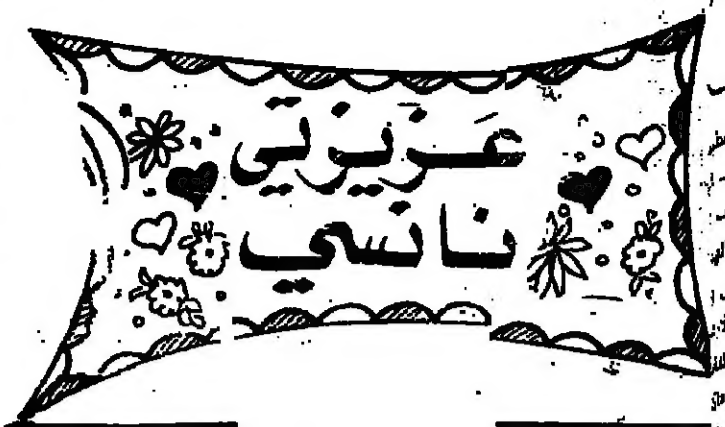 عزيزتي
نانسي